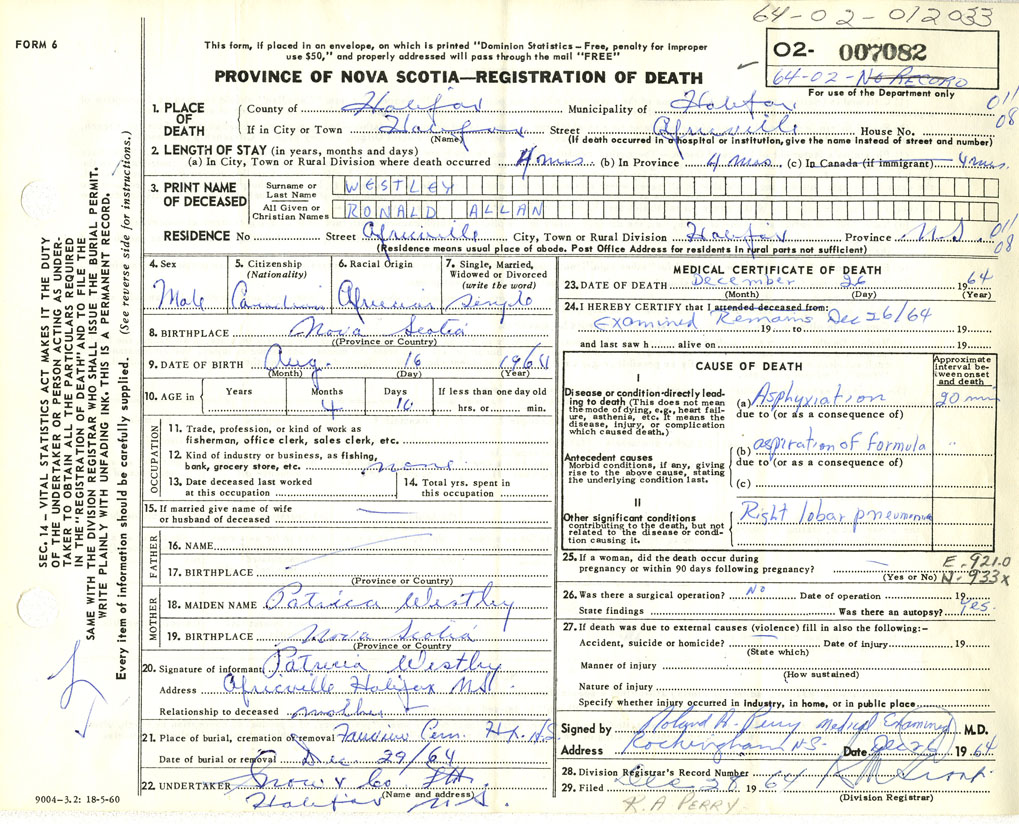 64-02-012033
FORM 6
This form, if placed in an envelope, on which is printed "Dominion Statistics – Free, penalty for improper
use $50," and properly addressed will pass through the mail "FREE"
02- 007082
64-02-No RECORD
For use of the Department only
PROVINCE OF NOVA SCOTIA—REGISTRATION OF DEATH
1. PLACE OF DEATH
County of Halifax Municipality of Halifax 011 08
If in City or Town Halifax Street Africville House No.
(Name) (If death occurred in a hospital or institution, give the name instead of street and number)
2. LENGTH OF STAY (in years, months and days)
(a) In City, Town or Rural Division where death occurred 4 mos (b) In Province 4 mos (c) In Canada (if immigrant) 4 mos.
3. PRINT NAME OF DECEASED
Surname or Last Name WESTLEY
All Given or Christian Names RONALD ALLAN
RESIDENCE No Street Africville City, Town or Rural Division Halifax Province N.S. 011 08
(Residence means usual place of abode. Post Office Address for residents in rural parts not sufficient)
4. Sex Male
5. Citizenship (Nationality) Canadian
6. Racial Origin African
7. Single, Married, Widowed or Divorced (write the word) Single
8. BIRTHPLACE Nova Scotia
(Province or Country)
9. DATE OF BIRTH Aug. 16 1964
(Month) (Day) (Year)
10. AGE in Years Months 4 Days 10 If less than one day old hrs. or min.
OCCUPATION
11. Trade, profession, or kind of work as
fisherman, office clerk, sales clerk, etc.
12. Kind of industry or business, as fishing,
bank, grocery store, etc. none
13. Date deceased last worked
at this occupation
14. Total yrs. spent in
this occupation
15. If married give name of wife
or husband of deceased
FATHER
16. NAME
17. BIRTHPLACE
(Province or Country)
MOTHER
18. MAIDEN NAME Patricia Westley
19. BIRTHPLACE Nova Scotia
(Province or Country)
20. Signature of informant Patricia Westley
Address Africville Halifax N.S.
Relationship to deceased mother
21. Place of burial, cremation or removal Fairview Cem. Hx. N.S.
Date of burial or removal Dec 29/64
22. UNDERTAKER Snow & Co Ltd.
(Name and address)
Halifax N.S.
9004-3.2: 18-5-60
MEDICAL CERTIFICATE OF DEATH
23. DATE OF DEATH December 26 1964
(Month) (Day) (Year)
24. I HEREBY CERTIFY that I attended deceased from:
Examined Remains Dec 26/64
19 to 19
and last saw h alive on 19
CAUSE OF DEATH
Approximate interval between onset and death
I
Disease or condition directly leading
to death (This does not mean
the mode of dying, e.g., heart failure,
asthenia, etc. It means the
disease, injury, or complication
which caused death.)
(a) Asphyxiation 20 min
due to (or as a consequence of)
(b) aspiration of formula "
due to (or as a consequence of)
(c)
Antecedent causes
Morbid conditions, if any, giving
rise to the above cause, stating
the underlying condition last.
II
Other significant conditions
contributing to the death, but not
related to the disease or condition
causing it.
Right lobar pneumonia
25. If a woman, did the death occur during
pregnancy or within 90 days following pregnancy?
(Yes or No)
E.921.0
N-933x
26. Was there a surgical operation? No Date of operation 19
State findings Was there an autopsy? Yes.
27. If death was due to external causes (violence) fill in also the following:–
Accident, suicide or homicide? Date of injury 19
(State which)
Manner of injury
(How sustained)
Nature of injury
Specify whether injury occurred in industry, in home, or in public place
Signed by Roland H. Perry Medical Examiner M.D.
Address Rockingham N.S. Date Dec 26 1964
28. Division Registrar's Record Number
29. Filed Dec 28 1964
(Division Registrar)
K. A PERRY
SEC. 14 – VITAL STATISTICS ACT MAKES IT THE DUTY
OF THE UNDERTAKER OR PERSON ACTING AS UNDERTAKER
TO OBTAIN ALL THE PARTICULARS REQUIRED
IN THE "REGISTRATION OF DEATH" AND TO FILE THE
SAME WITH THE DIVISION REGISTRAR WHO SHALL ISSUE THE BURIAL PERMIT.
WRITE PLAINLY WITH UNFADING INK. THIS IS A PERMANENT RECORD.
Every item of information should be carefully supplied. (See reverse side for instructions.)